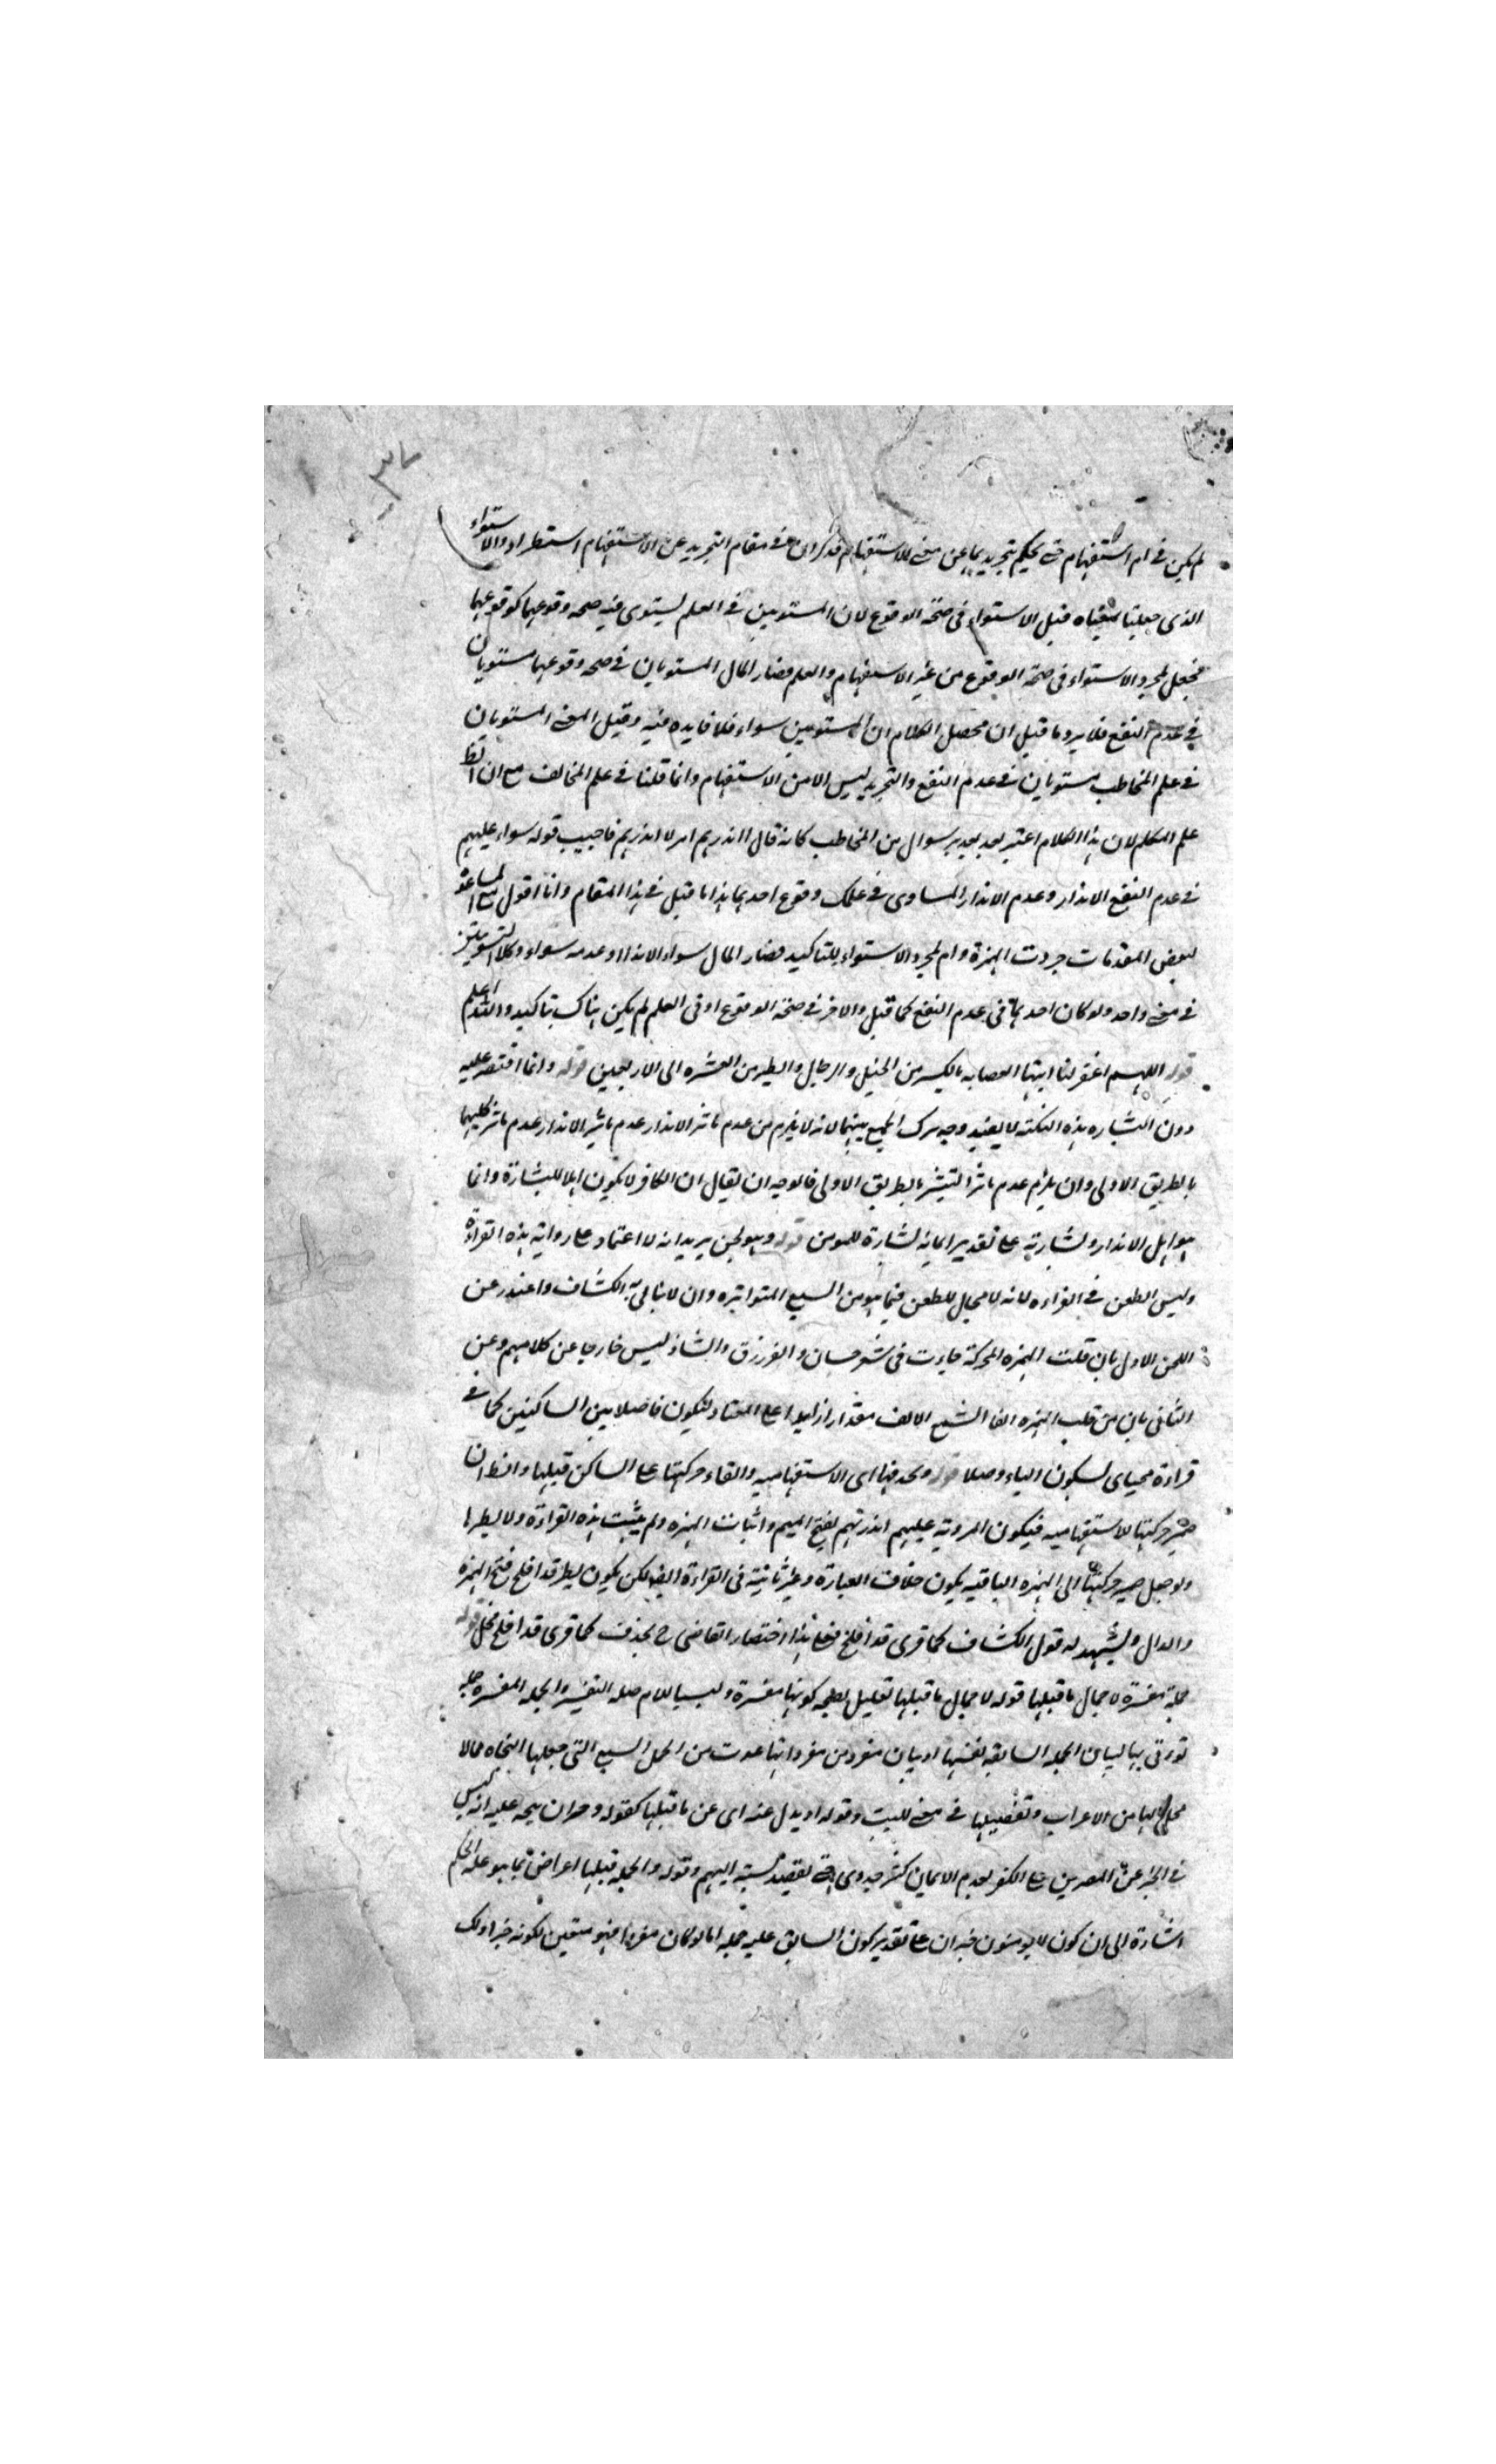 ٣٧
لم يكن في ام استفهام حتى يحكم بتجريدهما عن معنى الاستفهام فذكر ام في مقام التجريد عن الاستفهام استطراد والاستواء
الذي جعلتا بمعناه قيل الاستواء في صحة الوقوع لان المستويين في العلم يستوى فيه صحه وقوعهما كوقوعهما
فجعل لمجرد الاستواء في صحة الوقوع من غير الاستفهام والعلم فصار المال المستويان في صحه وقوعهما مستويان
في عدم النفع فلا يرد ما قيل ان محصل الكلام ان المستويين سواء فلا فايده فيه وقيل المعنى المستويان
في علم المخاطب مستويان في عدم النفع والتجريد ليس الا من الاستفهام وانما قلنا في علم المخالف مع ان
علم المتكلم لان هذا الكلام اعتبر بعد سوال من المخاطب كانه قال اانذرهم ام لا انذرهم فاجيب بقوله سواء عليهم
في عدم النفع الانذار وعدم الانذار المساوى في علمك وقوع احدهما هذا ما قيل في هذا المقام وانا اقول مع المساعدة
لبعض المقدمات جردت الهمزة وام لمجرد الاستواء للتاكيد فصار المال سواء الانذار وعدمه سواء وكلا التسويتين
في معنى واحد ولو كان احدهما في عدم النفع كما قيل والاخر في صحة الوقوع او في العلم لم يكن هناك تاكيد والله اعلم
قوله اللهم اغفر لنا ايتها العصابه بالكسر من الخيل والرجال والطير من العشره الى الاربعين قوله وانما اقتصر عليه
دون البشاره هذه النكته لا يفيد وجه ترك الجمع بينهما لانه لا يلزم من عدم تاثير الانذار عدم تاثير كليهما
بالطريق الاولى وان يلزم عدم تاثير التبشير بالطريق الاولى فالوجه ان يقال ان الكافر لا يكون اهلا للبشارة وانما
هو اهل الانذار وبشارته على تقدير ايمانه بشارة للمومن قوله وهو لحن يريد انه لا اعتماد على رواية هذه القراءة
وليس الطعن في القراءه لانه لا مجال للطعن فيما هو من السبع المتواتره وان لا يبالي به الكشاف واعتذر عن
اللحن الاول بان قلب الهمزه المتحركة جاءت في شعر حسان والفرزدق والشاذ ليس خارجا عن كلامهم وعن
الثاني بان من قلب الهمزه الفا اشبع الالف مقدارا زايدا على المعتاد ليكون فاصلا بين الساكنين كما في
قراءة محياى بسكون الياء وصلا قوله وبحذفها اى الاستفهاميه والقاء حركتها على الساكن قبلها والظ ان
ضمير حركتها للاستفهاميه فيكون المروية عليهم انذرتهم بفتح الميم واثبات الهمزه ولم يثبت هذه القراءة ولا يطرد
ولو جعل ضمير حركتها الى الهمزه الباقيه يكون خلاف العبارة وغير ثابتة في القراءة ايض لكن يكون نظير قد افلح بفتح الهمزه
والدال ويشهد له قول الكشاف كما قرى قد افلح فعلى هذا اختصار القاضى بحذف كما قرى قد افلح مخل قوله
جملة مفسرة لاجمال ما قبلها قوله لاجمال ما قبلها تعليل لصحه كونها مفسرة وليس اللام صله التفسير والجمله المفسره جمله
توتى بها لبيان الجمله السابقه بنفسها او بيان مفرد من مفرداتها عدت من الجمل السبع التي جعلها النحاه مما لا
محل لها من الاعراب وتفصيلها في مغنى اللبيب وقوله او بدل عنه اى عن ما قبلها كقوله وخبر ان يتجه عليه انه ليس
في الخبر عن المصرين على الكفر بعدم الايمان كثير جدوى يقصد نسبته اليهم وقوله والجمله قبلها اعتراض بما هو علة الحكم
اشارة الى ان كون لا يومنون خبر ان على تقدير كون السابق عليه جمله اما لو كان مفردا فهو متعين لكونه خبرا ولك